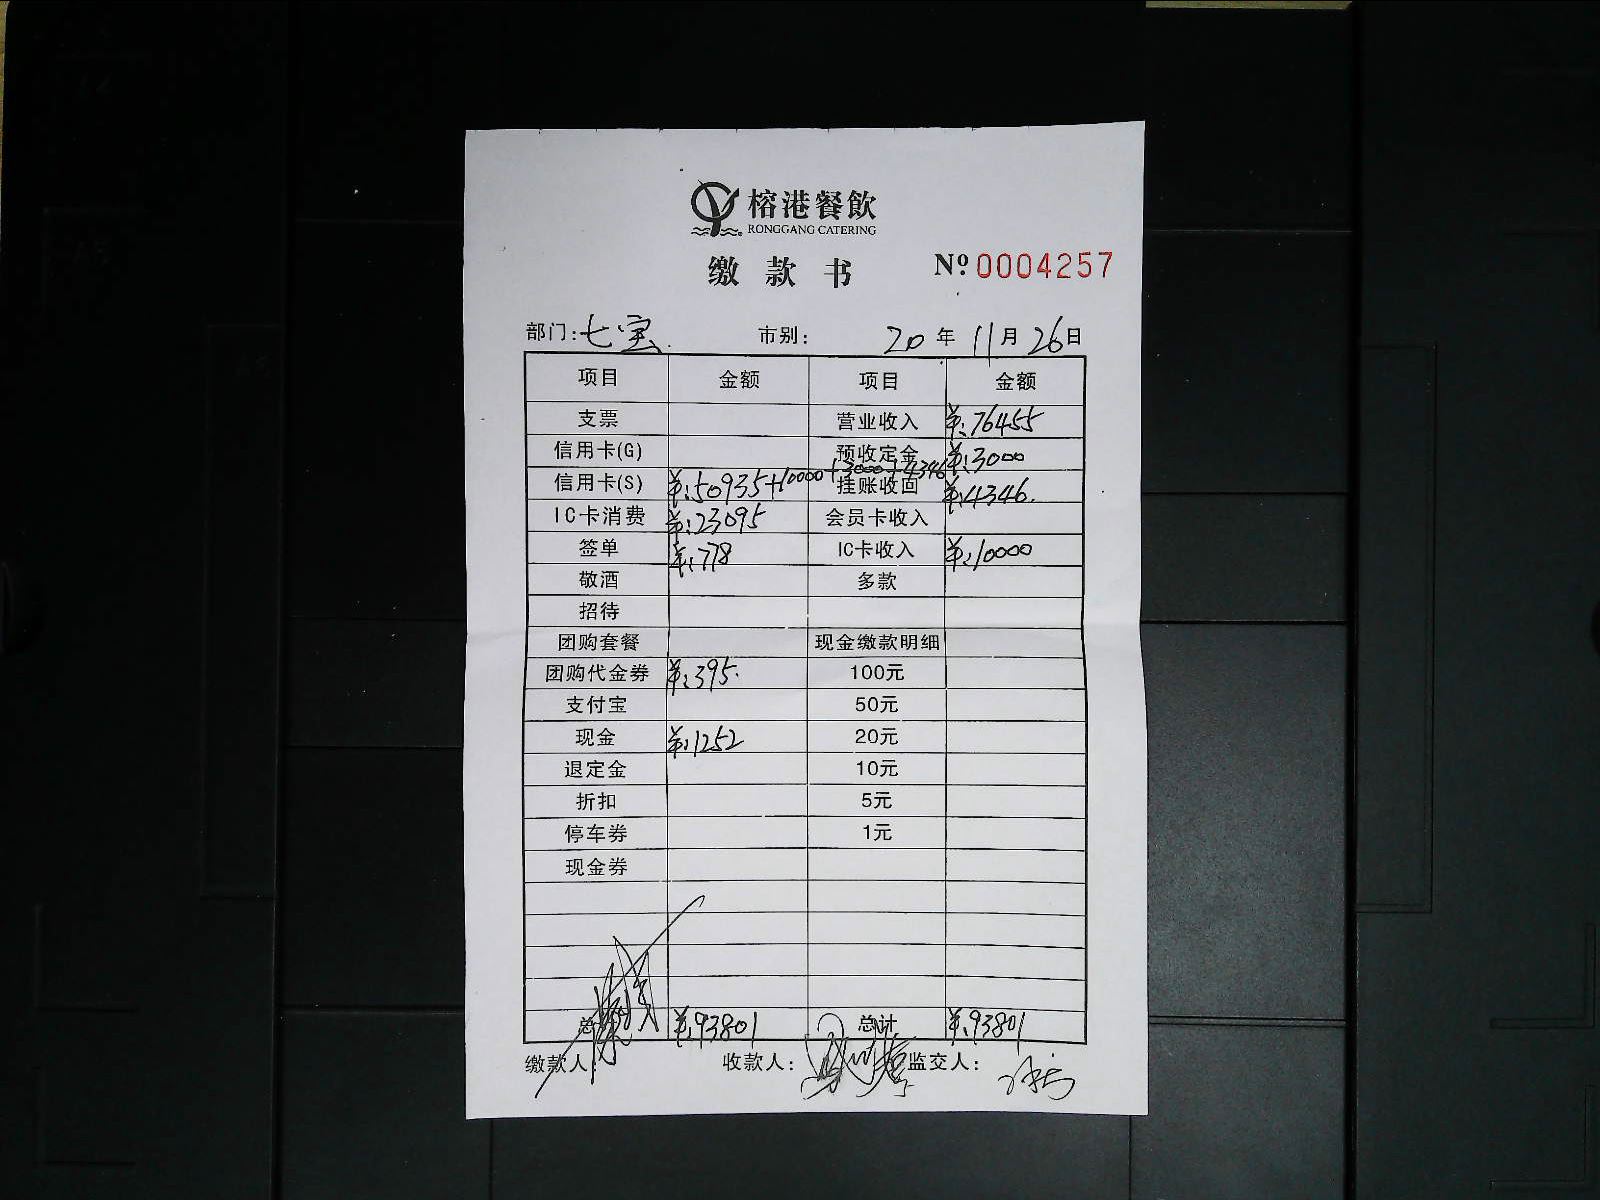 榕港餐飲
RONGGANG CATERING
缴款书 № 0004257
部门:七宝 市别: 20年11月26日
项目 金额 项目 金额
支票 营业收入 ¥:76455
信用卡(G) 预收定金 ¥:3000
信用卡(S) ¥:50935+10000+3000+4346 挂账收回 ¥:4346.
IC卡消费 ¥:23095 会员卡收入
签单 ¥:778 IC卡收入 ¥:10000
敬酒 多款
招待
团购套餐 现金缴款明细
团购代金券 ¥:395. 100元
支付宝 50元
现金 ¥:1252 20元
退定金 10元
折扣 5元
停车券 1元
现金券
总 ¥:93801 总计 ¥:93801
缴款人: 收款人: 监交人: